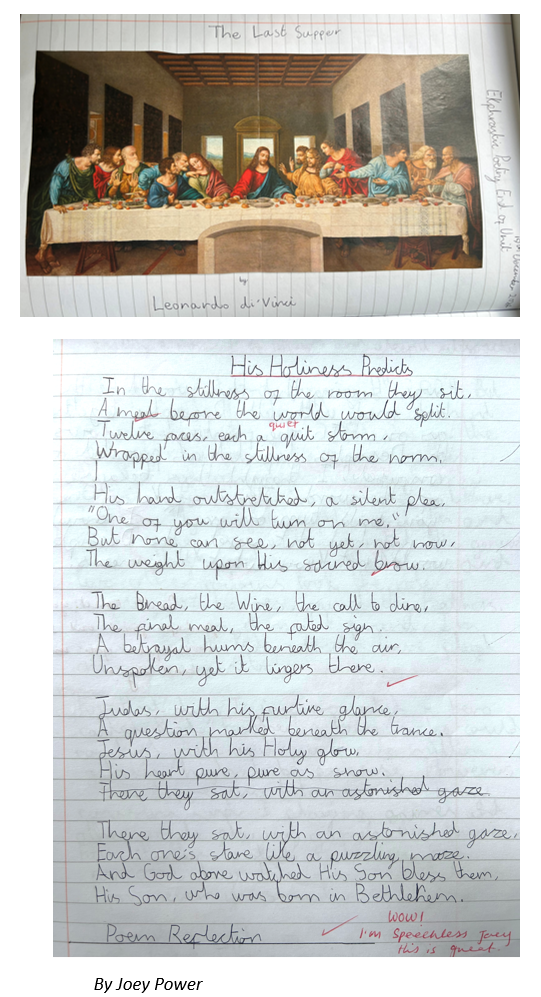 The Last Supper
Ekphrastic Poetry End of Unit
December
by
Leonardo di'Vinci
His Holiness Predicts
In the stillness of the room they sit,
A meal before the world would split.
quiet
Twelve faces, each a quit storm,
Wrapped in the stillness of the norm.
His hand outstretched, a silent plea,
"One of you will turn on me."
But none can see, not yet, not now,
The weight upon His sacred brow.
The Bread, the Wine, the call to dine,
The final meal, the fated sign.
A betrayal hums beneath the air,
Unspoken, yet it lingers there.
Judas, with his furtive glance,
A question marked beneath the trance.
Jesus, with his Holy glow,
His heart pure, pure as snow.
There they sat, with an astonished gaze
There they sat, with an astonished gaze,
Each one's stare like a puzzling maze.
And God above watched His Son bless them,
His Son, who was born in Bethlehem.
WOW!
I'm Speechless Joey
this is great.
Poem Reflection
By Joey Power